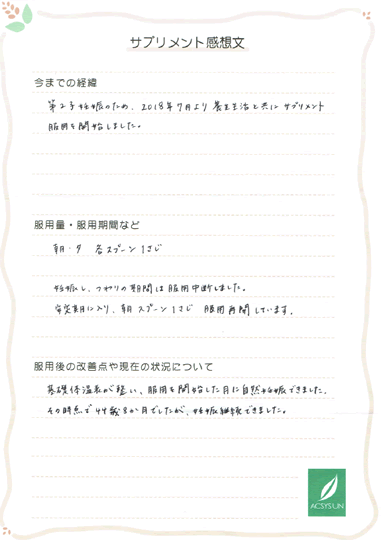 サプリメント感想文
今までの経緯
第2子妊娠のため、2018年7月より養生生活と共にサプリメント
服用を開始しました。
服用量・服用期間など
朝・夕 各スプーン1さじ
妊娠し、つわりの期間は服用中断しました。
安定期に入り、朝スプーン1さじ 服用再開しています。
服用後の改善点や現在の状況について
基礎体温表が整い、服用を開始した月に自然妊娠できました。
その時点で44歳8か月でしたが、妊娠継続できました。
ACSYSUN